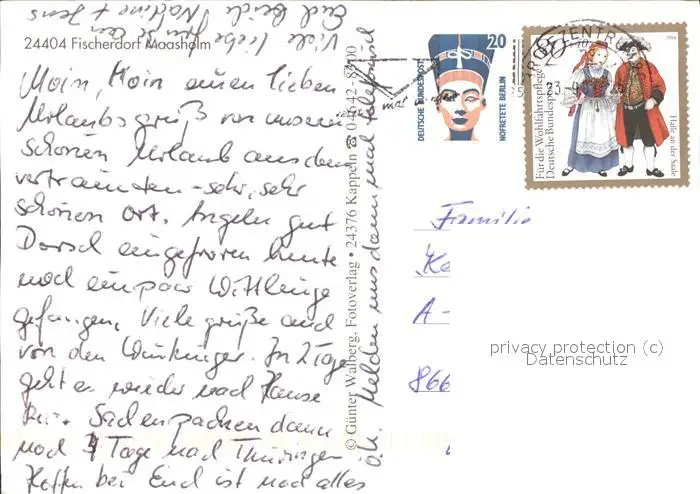 24404 Fischerdorf Maasholm
Moin, Moin einen lieben
Urlaubsgruß von unserem
schönen Urlaub aus dem
verträumten - sehr, sehr
schönen Ort. Angeln gut
Dorsch eingefroren heute
noch ein paar Wittlinge
gefangen, Viele grüße auch
von den . In 2 Tage
geht es wieder nach Hause
Sachen packen dann
noch 4 Tage nach Thüringen
Hoffen bei Euch ist noch alles
o.k. Melden uns dann mal telefonisch
Viele liebe
Euch Beide Nadine + Jens
© Günter Walberg, Fotoverlag • 24376 Kappeln ☎ 04642-83100
DEUTSCHE BUNDESPOST
20
NOFRETETE BERLIN
Für die Wohlfahrtspflege
Deutsche Bundespost
1994
Halle an der Saale
Familie
Ke
A-
866
privacy protection (c)
Datenschutz